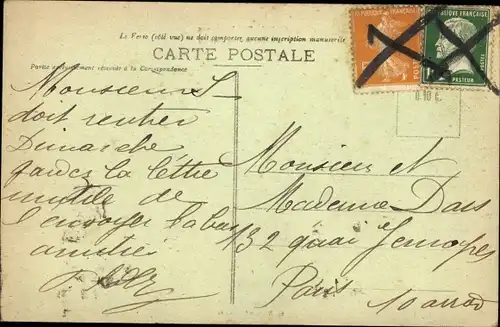 Le Verso (côté vue) ne doit comporter aucune inscription manuscrite
CARTE POSTALE
Partie exclusivement réservée à la Correspondance
RÉPUBLIQUE FRANÇAISE
POSTES
PASTEUR
0.10 c.
Monsieur S
doit rentrer
Dimanche
gardez la lettre
inutile de
l'envoyer la bas
amitiés
Monsieur et
Madame Dars
132 quai Jemapes
Paris
10 arrond